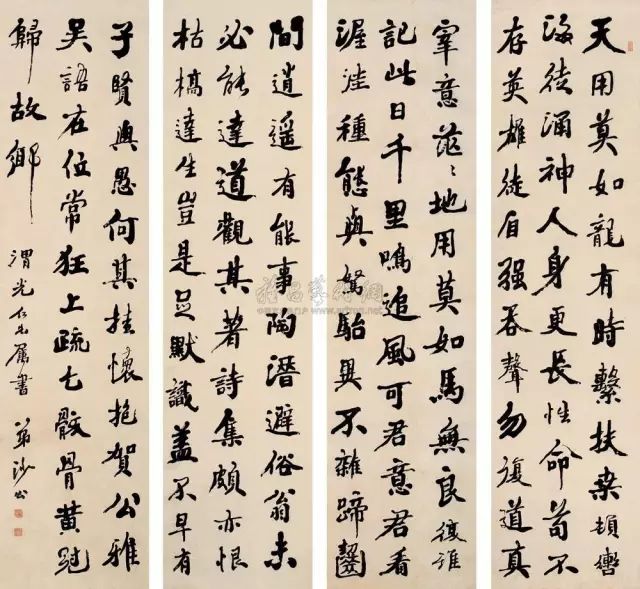 天用莫如龍有時繫扶桑頓轡
海徒涌神人身更長性命苟不
存英雄徒自强吞聲勿復道真
宰意茫〻地用莫如馬無良復誰
記此日千里鳴追風可君意君看
渥洼種態與駑駘異不雜蹄齧
間逍遥有能事陶潛避俗翁未
必能達道觀其著詩集頗亦恨
枯槁達生豈是足默識蓋不早有
子賢與愚何其挂懷抱賀公雅
吳語在位常狂上疏乞骸骨黄冠
歸故鄉
渭光仁兄屬書